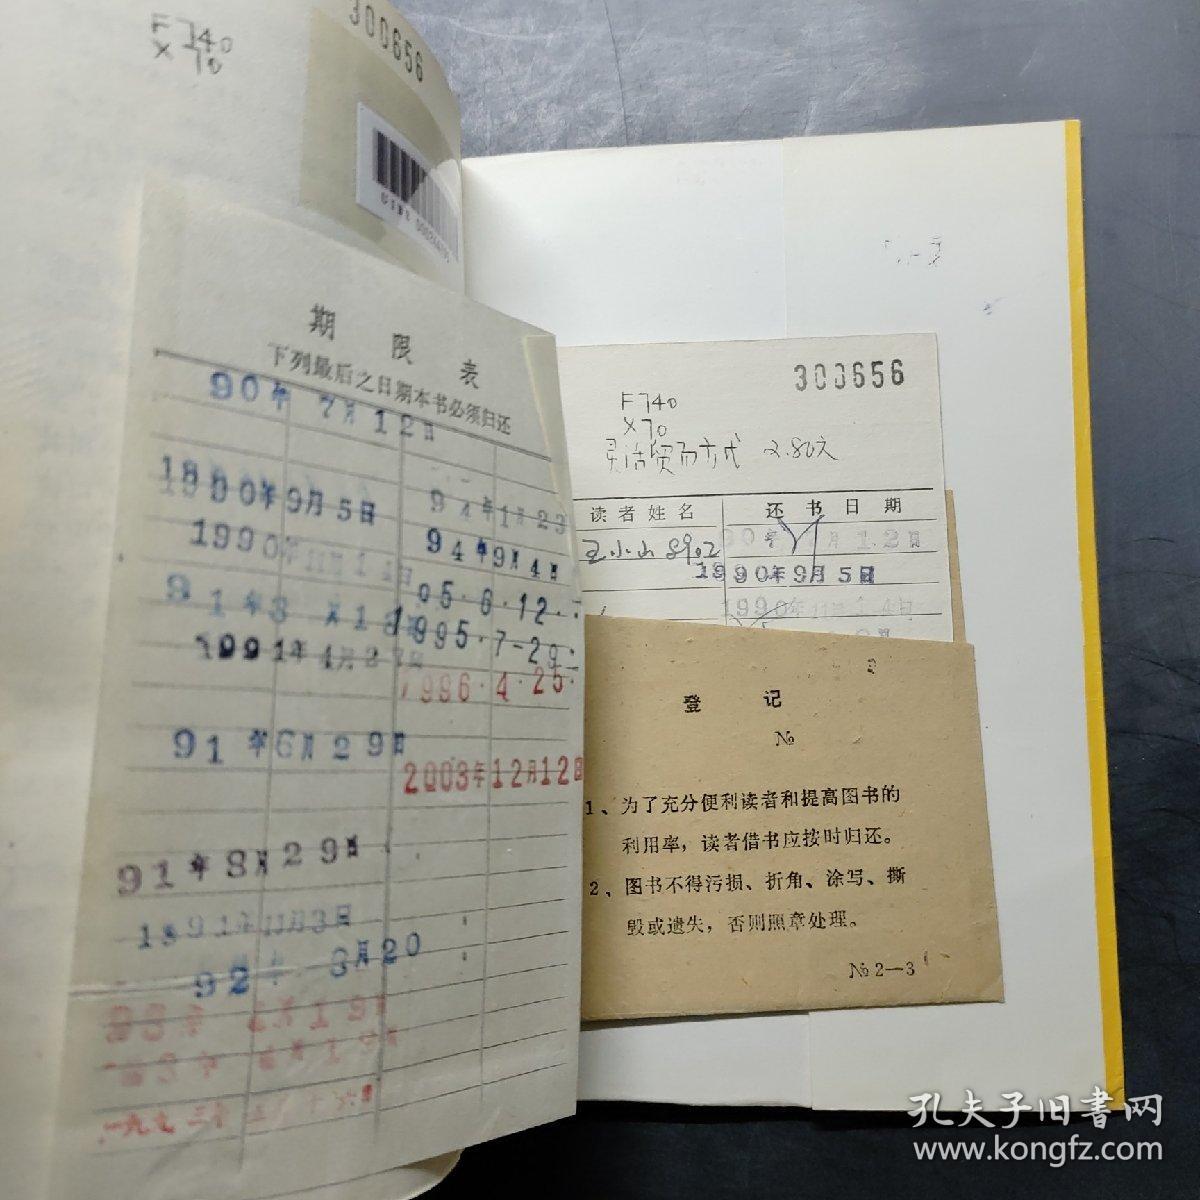 F740
X70
300656
期限表
下列最后之日期本书必须归还
90年7月12日
1990年9月5日
1990年11月14日
1991年4月27日
91年6月29日
91年8月29日
1991年11月3日
92年 3月20
94年1月23
94年9月4日
95·6·12·
1995·7-29
1996·4·25·
2003年12月12日
300656
F740
X70
灵活贸易方式 2.80元
读者姓名 还书日期
王小山 8902 90年7月12日
1990年9月5日
1990年11月14日
登记
№
1、为了充分便利读者和提高图书的
利用率，读者借书应按时归还。
2、图书不得污损、折角、涂写、撕
毁或遗失，否则照章处理。
№2—3
孔夫子旧書网
www.kongfz.com